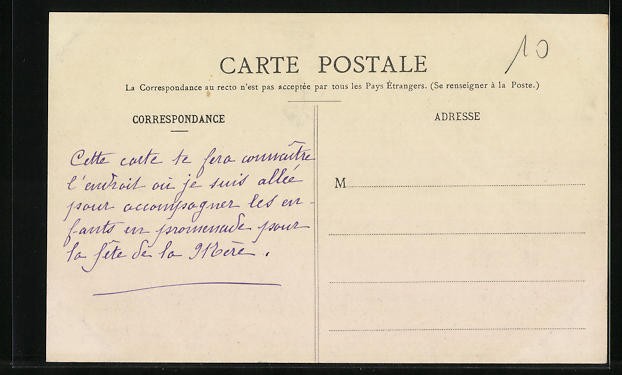 10
CARTE POSTALE
La Correspondance au recto n'est pas acceptée par tous les Pays Étrangers. (Se renseigner à la Poste.)
CORRESPONDANCE
Cette carte te fera connaître
l'endroit où je suis allée
pour accompagner les en-
fants en promenade pour
la fête de la Mère.
ADRESSE
M